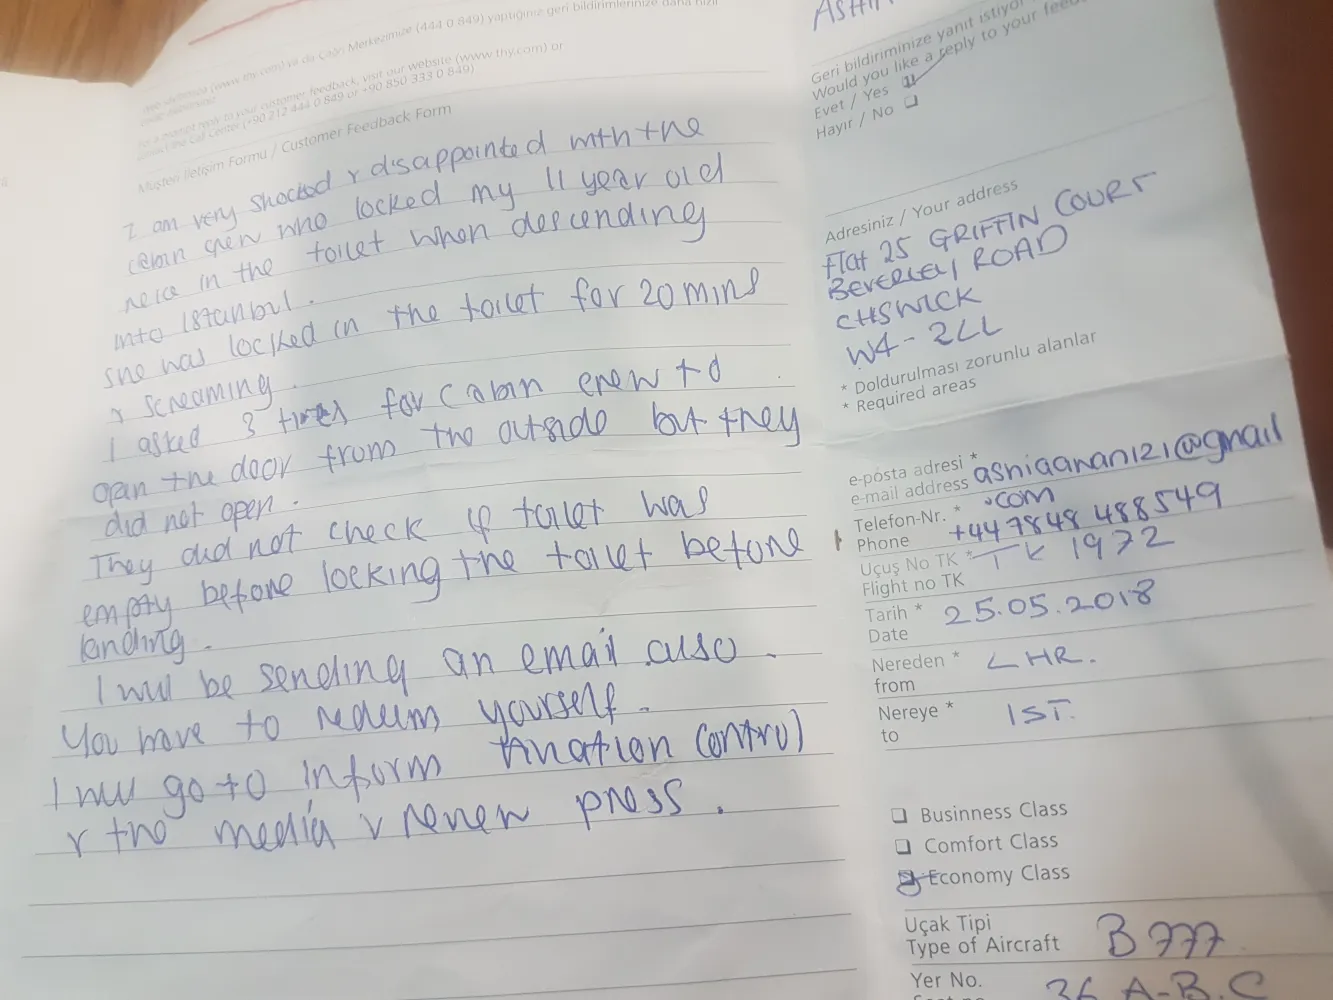 (www.thy.com) ya da Çağrı Merkezimize (444 0 849) yaptığınız geri bildirimlerinize daha hızlı
For a prompt reply to your customer feedback, visit our website (www.thy.com) or
contact the Call Center (+90 212 444 0 849 or +90 850 333 0 849)
Müşteri İletişim Formu / Customer Feedback Form
I am very shocked & disappointed with the
cabin crew who locked my 11 year old
neice in the toilet when descending
into Istanbul.
She was locked in the toilet for 20 mins
& screaming.
I asked 3 times for cabin crew to
open the door from the outside but they
did not open.
They did not check if toilet was
empty before locking the toilet before
landing.
I will be sending an email also.
You have to redeem yourself.
I will go to inform aviation control
& the media & renew press.
Geri bildiriminize yanıt istiyor
Would you like a reply to your feed
Evet / Yes
Hayır / No
Adresiniz / Your address
Flat 25 GRIFFIN COURT
BEVERLEY ROAD
CHSWICK
W4-2LL
* Doldurulması zorunlu alanlar
* Required areas
e-posta adresi *
e-mail address ashiaanan121@gmail
.com
Telefon-Nr. *
Phone +447848 488549
Uçuş No TK *
Flight no TK TK 1972
Tarih *
Date 25.05.2018
Nereden *
from LHR.
Nereye *
to IST.
Businness Class
Comfort Class
Economy Class
Uçak Tipi
Type of Aircraft B777
Yer No.
36 A-B.C